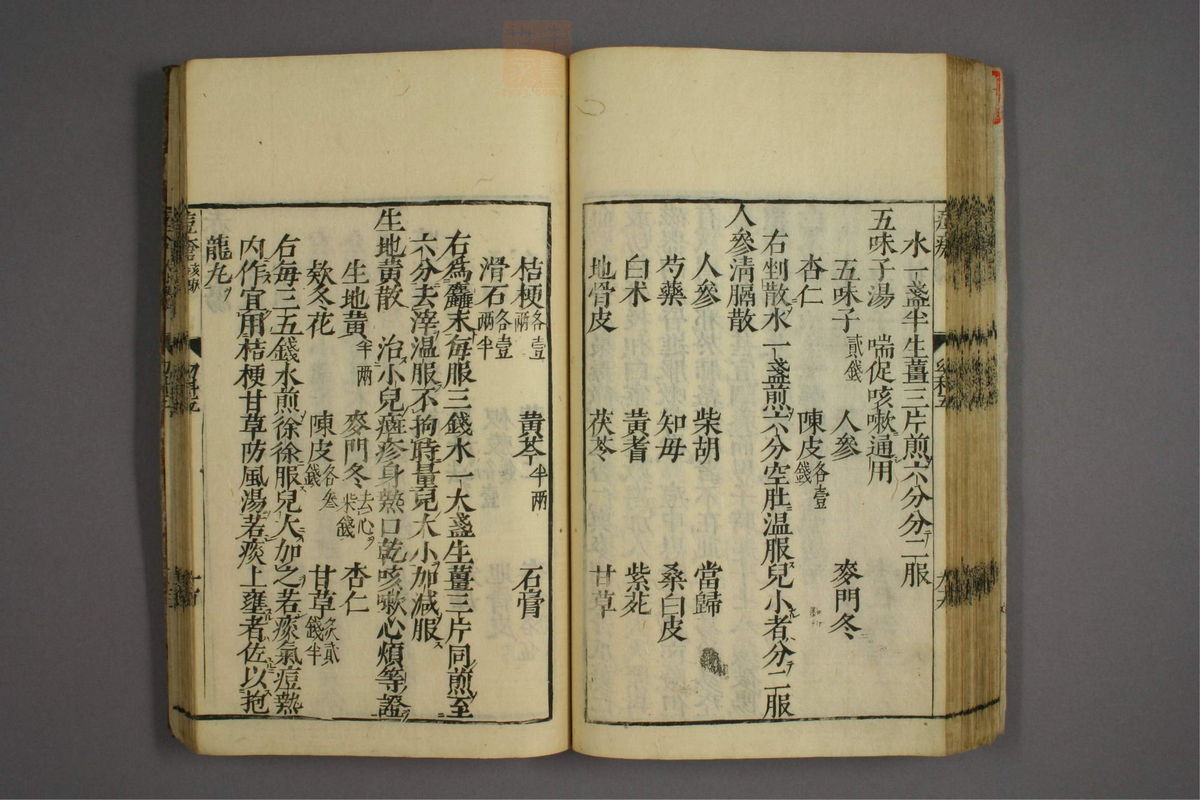 水一盞半生薑三片煎六分分二服
五味子湯 喘促咳嗽通用
五味子貳錢 人參 麥門冬
杏仁 陳皮各壹錢
右剉散水一盞煎六分空肚溫服兒小者分二服
人參淸膈散
人參 柴胡 當歸
芍藥 知母 桑白皮
白朮 黃耆 紫苑
地骨皮 茯苓 甘草
桔梗各壹兩 黃芩半兩 石膏
滑石各壹兩半
右爲麤末每服三錢水一大盞生薑三片同煎至
六分去滓溫服不拘時量兒大小加減服
生地黃散 治小兒癍疹身熱口乾咳嗽心煩等證
生地黃半兩 麥門冬去心柒錢 杏仁
欵冬花 陳皮各叁錢 甘草炙貳錢半
右每三五錢水煎徐徐服兒大加之若痰氣痘熱
內作宜用桔梗甘草防風湯若痰上壅者佐以抱
龍丸